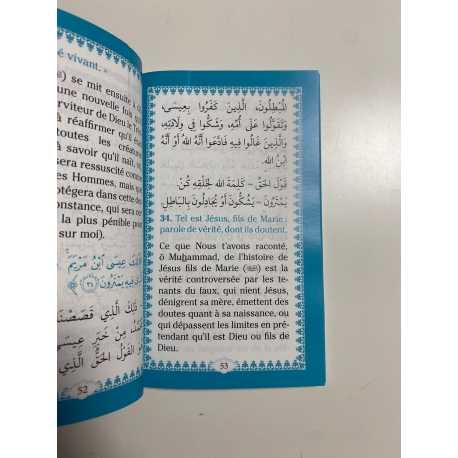 é vivant. »
) se mit ensuite à
une nouvelle fois qu
rviteur de Dieu à Tou
à réaffirmer qu'il
toutes les créa
à savoir qu'il naît,
sera ressuscité com
es Hommes, mais qu
otégera dans cette d
onstance, qui sera cer
la plus pénible pour
sur moi).
عِيسَى ابْنُ مَرْيَمَ
فِيهِ يَمْتَرُونَ ﴿٣٤﴾
ذَلِكَ الَّذِي قَصَصْنَا
مِنْ خَبَرِ عِيسَى
الْقَوْلُ الْحَقُّ الَّذِي
52
الْمُبْطِلُونَ، الَّذِينَ كَفَرُوا بِعِيسَى،
وَتَقَوَّلُوا عَلَى أُمِّهِ، وَشَكُّوا فِي وِلَادَتِهِ،
وَالَّذِينَ غَالَوْا فِيهِ فَادَّعَوْا أَنَّهُ اللهُ أَوْ أَنَّهُ
ابْنُ اللهِ.
قَوْلَ الْحَقِّ – كَلِمَةُ اللهِ لِخَلْقِهِ كُنْ.
يَمْتَرُونَ – يَشُكُّونَ أَوْ يُجَادِلُونَ بِالْبَاطِلِ.
34. Tel est Jésus, fils de Marie :
parole de vérité, dont ils doutent.
Ce que Nous t'avons raconté,
ô Muḥammad, de l'histoire de
Jésus fils de Marie (ﷺ) est la
vérité controversée par les te-
nants du faux, qui nient Jésus,
dénigrent sa mère, émettent des
doutes quant à sa naissance, ou
qui dépassent les limites en pré-
tendant qu'il est Dieu ou fils de
Dieu.
53